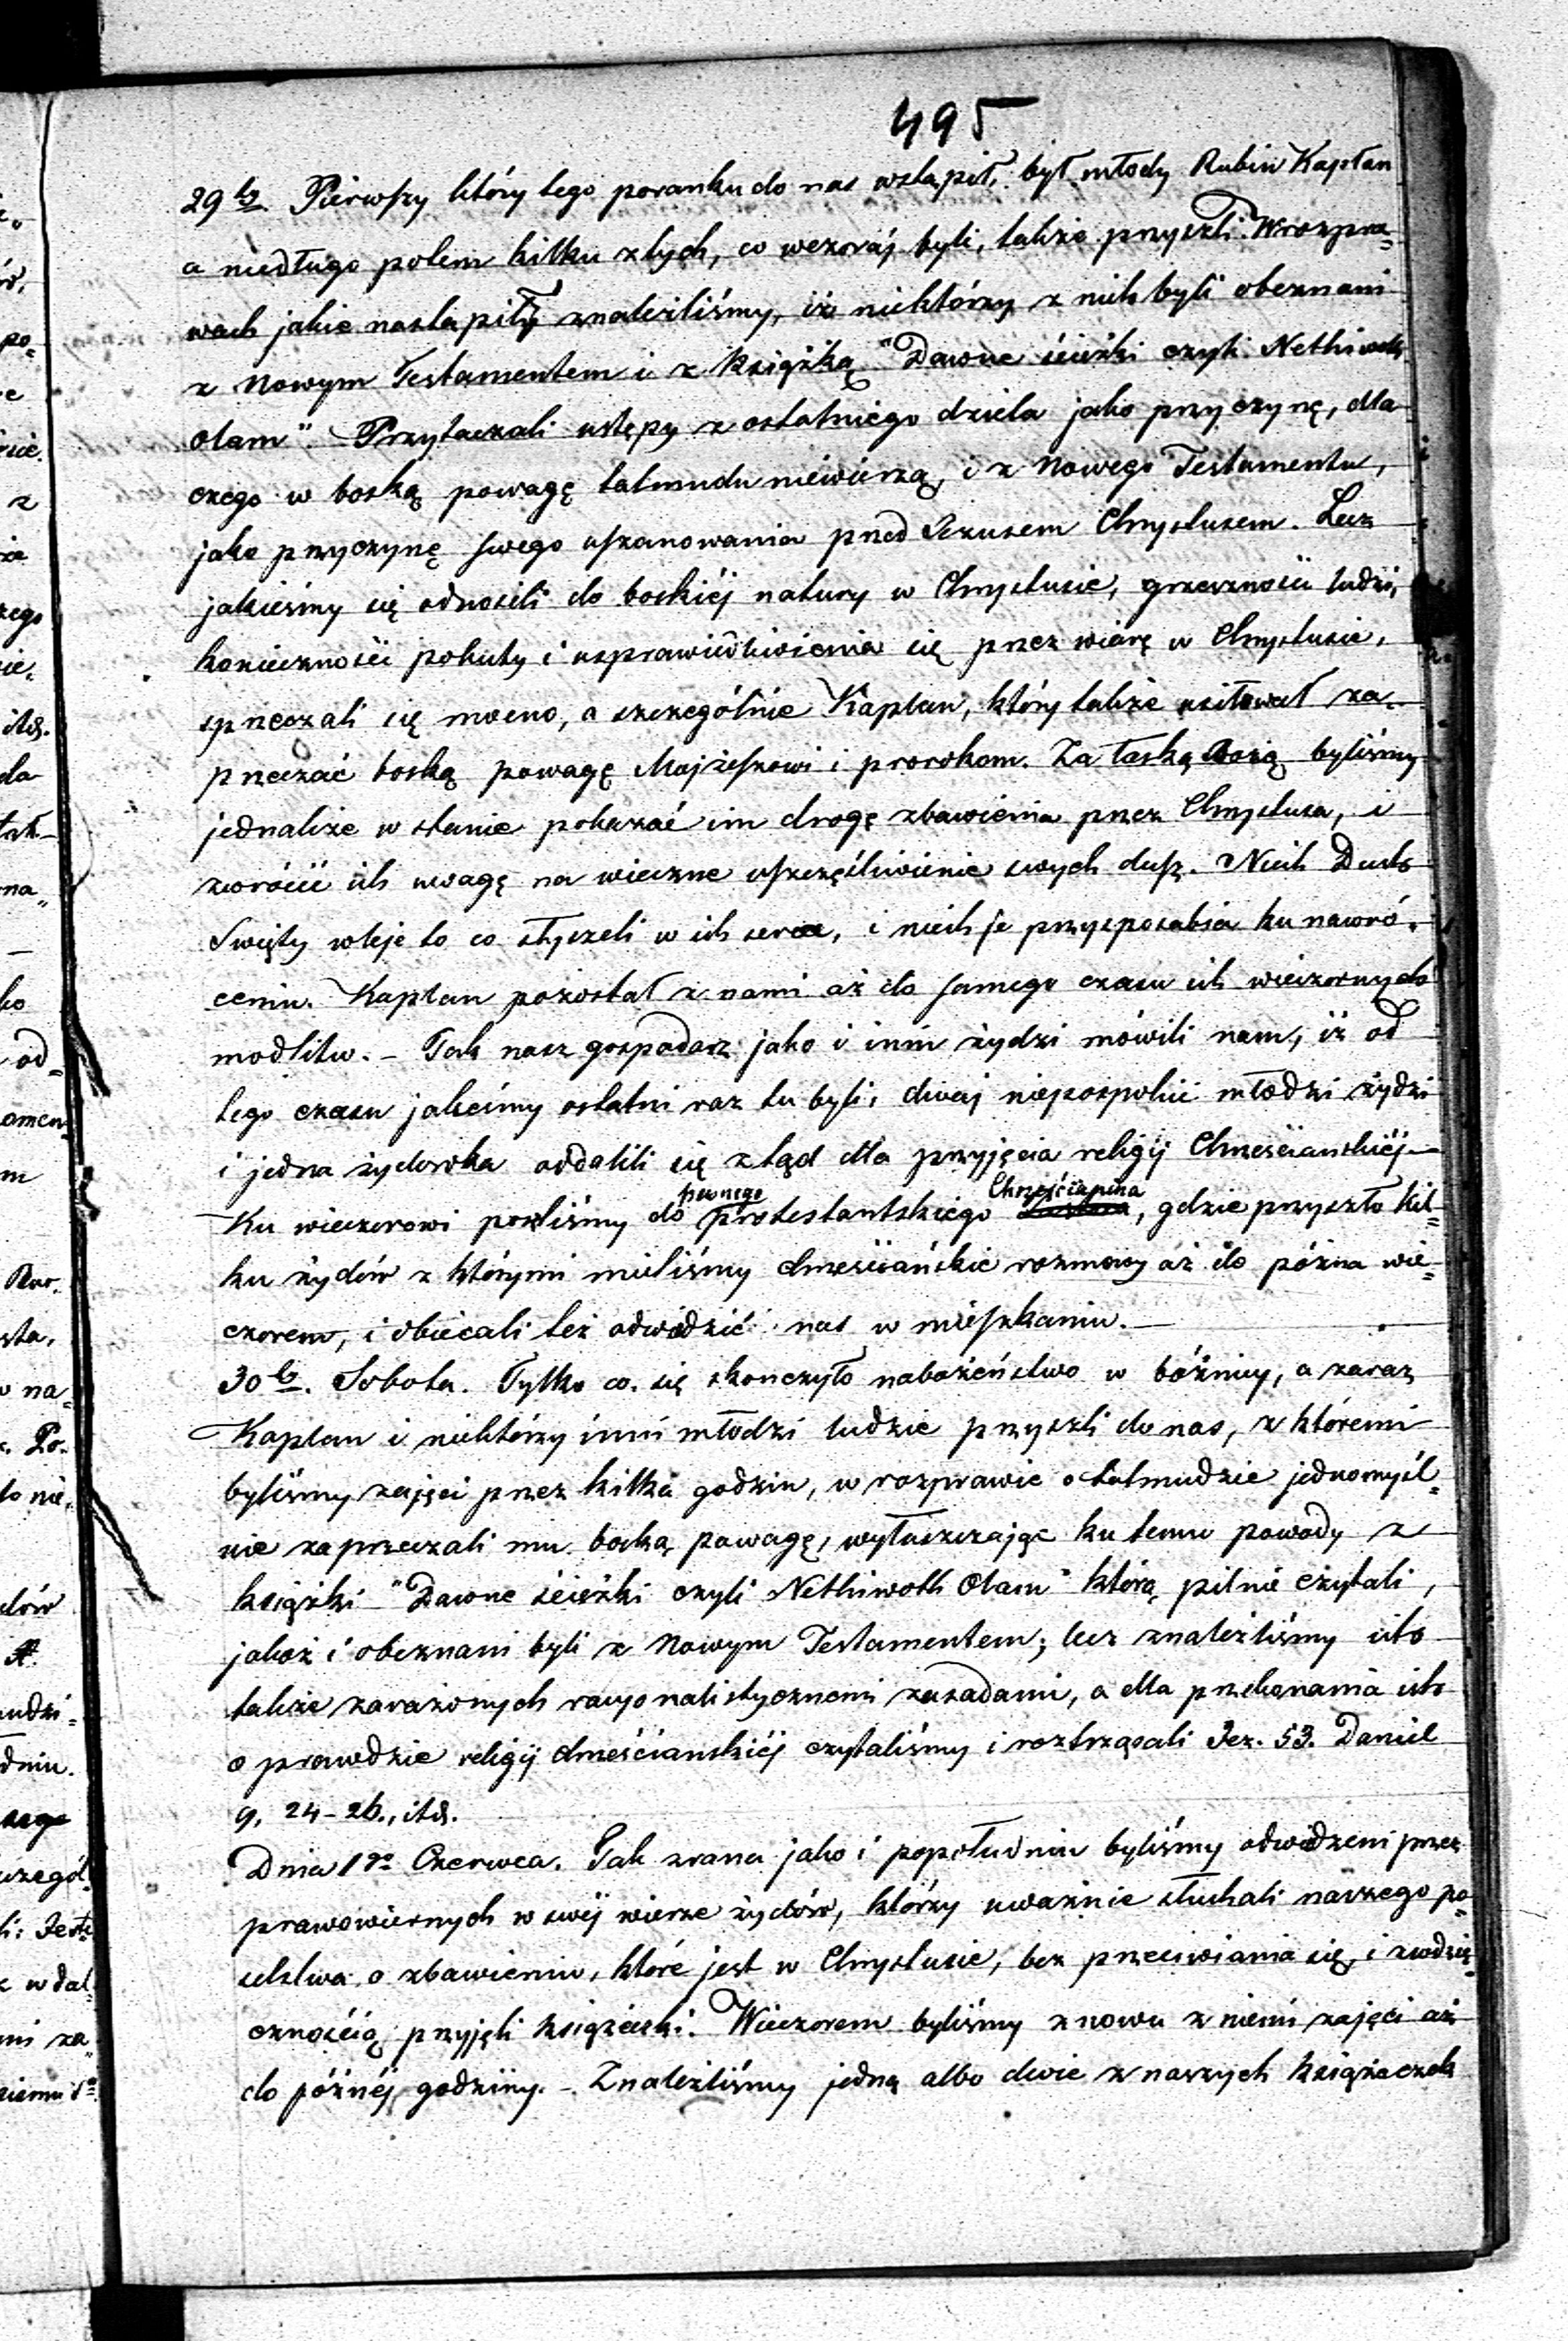 495
29go Pierwszy który tego poranku do nas wstąpił, był młody Rubin Kapłan
a niedługo potem kilku z tych, co wczoráj byli, także przyszli. W rozpra=
wach jakie nastąpiły znaleźliśmy, iż niektórzy z nich byli obeznani
z Nowym Testamentem i z książką "Dawne ścieżki czyli Nethiwoth
Olam". Przytaczali ustępy z ostatniego dzieła jako przyczynę, dla
czego w boską powagę talmudu niewierzą, i z Nowego Testamentu,
jako przyczynę swego uszanowania przed Jezusem Chrystusem. Lecz
jakieśmy się odnosili do boskiéj natury w Chrystusie, grzeszności ludzi,
konieczności pokuty i usprawiedliwienia się przez wiarę w Chrystusie,
sprzeczali się mocno, a szczególnie Kaplan, który także usiłował za=
przeczać boską powagę Mojżeszowi i prorokom. Za łaską Bożą byliśmy
jednakże w stanie pokazać im drogę zbawienia przez Chrystusa, i
zwrócić ich uwagę na wieczne uszczęśliwienie swych dusz. Niech Duch
Święty wleje to co słyszeli w ich serca, i niech je przysposabia ku nawró=
ceniu. Kaplan pozostał z nami aż do samego czasu ich wieczornych
modlitw. – Tak nasz gospodarz jako i inni żydzi mówili nam, iż od
tego czasu jakeśmy ostatni raz tu byli, dwaj niepospolici młodzi żydzi
i jedna żydowka oddalili się ztąd dla przyjęcia religij Chrześciańskiéj. –
Ku wieczorowi poszliśmy do pewnego protestantskiego Chrześcijanina, gdzie przyszło kil=
ku żydów z którymi mieliśmy chrześciańskie rozmowy aż do późna wie=
czorem, i obiecali też odwiedzić nas w mieszkaniu. –
30go. Sobota. Tylko co się skonczyło nabożeństwo w bóżnicy, a zaraz
Kaplan i niektórzy inni młodzi ludzie przyszli do nas, z któremi
byliśmy zajęci przez kilka godzin, w rozprawie o talmudzie jednomyśl=
nie zaprzeczali mu boską powagę, wytłuszczając ku temu powody z
książki "Dawne ścieżki czyli Nethiwoth Olam" którą pilnie czytali,
jakoż i obeznani byli z Nowym Testamentem; lecz znaleźliśmy ich
także zarażonych racyonalistycznemi zasadami, a dla przekonania ich
o prawdzie religij chrześciańskiéj czytaliśmy i roztrząsali Jez. 53. Daniel
9, 24–26., itd.
Dnia 1go Czerwca. Tak zrana jako i popołudniu byliśmy odwiedzeni przez
prawowiernych w swéj wierze żydów, którzy uważnie słuchali naszego po=
selstwa o zbawieniu, które jest w Chrystusie, bez przeciwiania się, i z wdzię=
cznością przyjęli książeczki. Wieczorem byliśmy znowu z niemi zajęci aż
do późnéj godziny. – Znaleźliśmy jedną albo dwie z naszych książeczek